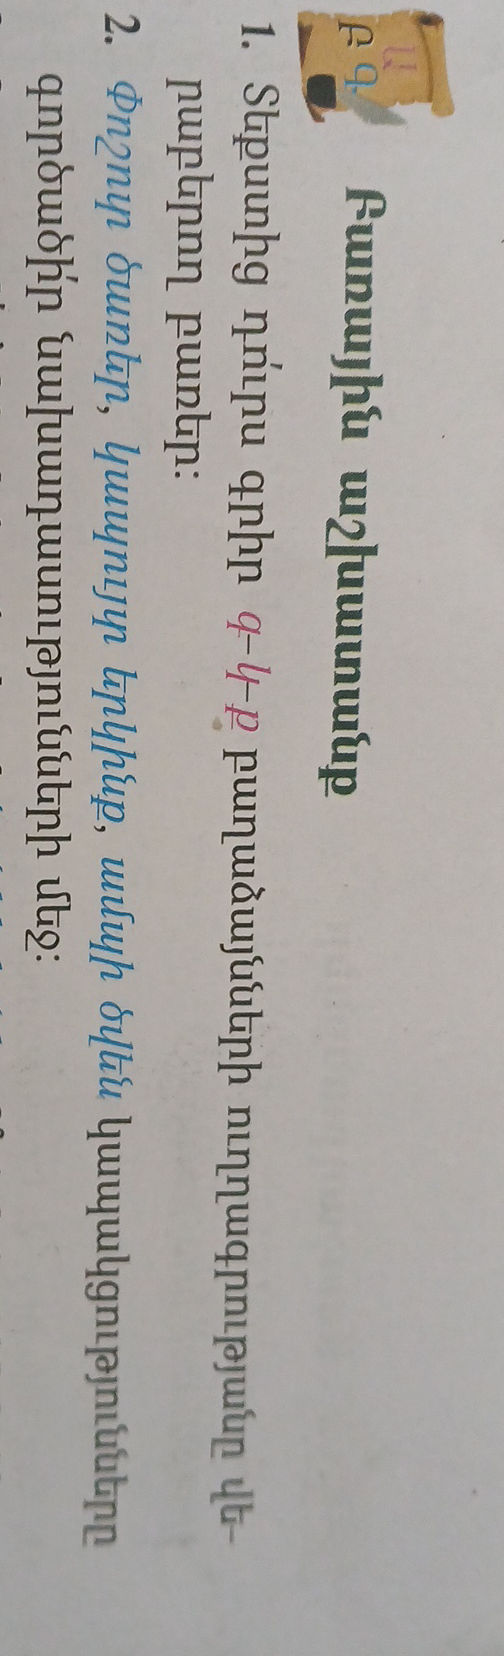 Ա
Բ Գ
Բառային աշխատանք
1. Տեքստից դո՛ւրս գրիր գ-կ-ք բաղաձայնների ուղղագրությանը վե-
րաբերող բառեր:
2. Փոշոտ ծառեր, կապույտ երկինք, ամպի ծվեն կապակցությունները
գործածի՛ր նախադասությունների մեջ: